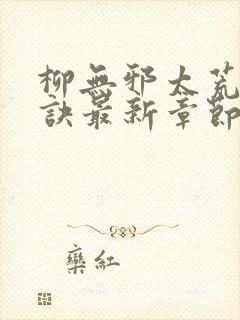 柳無邪太荒
訣最新章節
欒紅